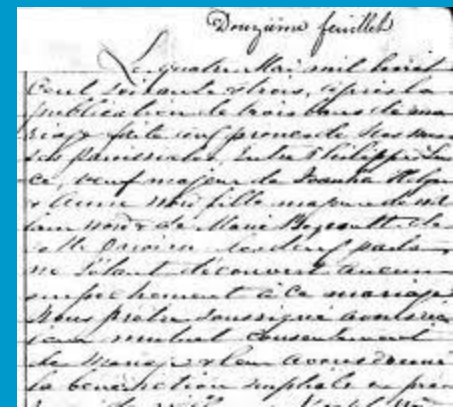 Douzième feuillet
Le quatre Mai mil huit
Cent soixante & trois, après la
publication de trois bans de ma
riage faite aux prones de nos mes
ses paroissiales, Entre Philippe
ce, veuf majeur de Joanna
& Anne fille majeure de Wil
liam & de Marie de
cette paroisse
ne s'étant découvert aucun
empêchement à ce mariage
Nous prêtre soussigné avons reçu
leur mutuel consentement
de mariage & leur avons donné
la bénédiction nuptiale en pré